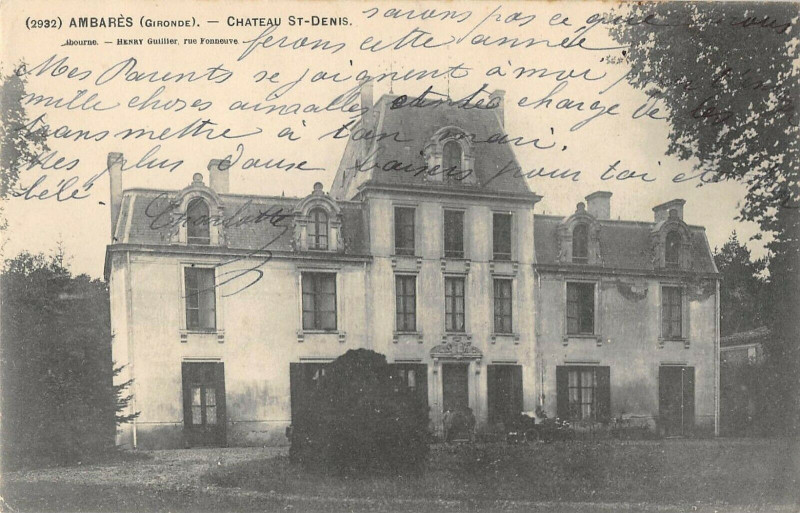 (2932) AMBARÈS (GIRONDE). — CHATEAU ST-DENIS.
ibourne. — HENRY Guillier, rue Fonneuve
sarons pas ce que nous
ferons cette année.
Mes Parents se joignent à moi pour
mille choses aimables et me charge de les
transmettre à ton mari.
Mes plus doux baisers pour toi et
Bélé.
Charlotte